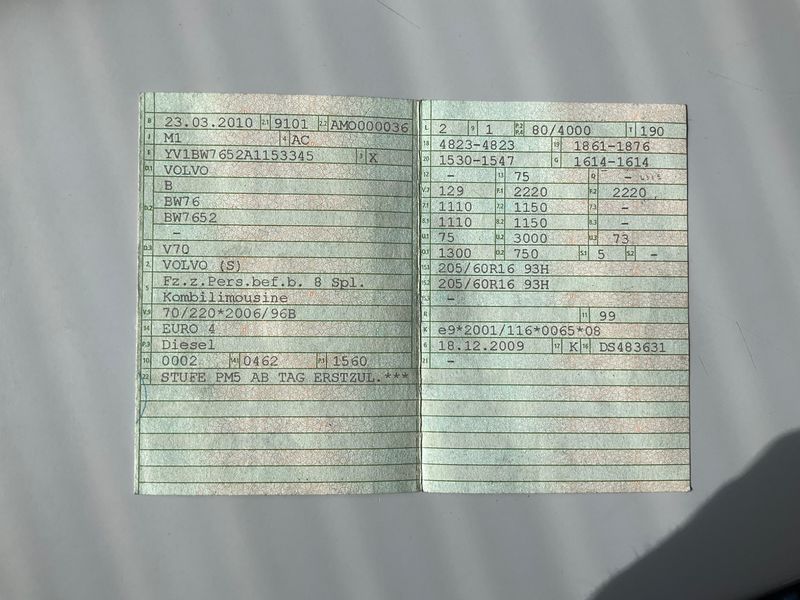 B 23.03.2010 2.1 9101 2.2 AMO000036
J M1 4 AC
E YV1BW7652A1153345 3 X
D.1 VOLVO
B
D.2 BW76
BW7652
–
D.3 V70
2 VOLVO (S)
5 Fz.z.Pers.bef.b. 8 Spl.
Kombilimousine
V.9 70/220*2006/96B
14 EURO 4
P.3 Diesel
10 0002 14.1 0462 P.1 1560
22 STUFE PM5 AB TAG ERSTZUL.***
L 2 9 1 P.2 P.4 80/4000 T 190
18 4823-4823 19 1861-1876
20 1530-1547 G 1614-1614
12 – 13 75 Q –
V.7 129 F.1 2220 F.2 2220
7.1 1110 7.2 1150 7.3 –
8.1 1110 8.2 1150 8.3 –
U.1 75 U.2 3000 U.3 73
O.1 1300 O.2 750 S.1 5 S.2 –
15.1 205/60R16 93H
15.2 205/60R16 93H
15.3 –
R 11 99
K e9*2001/116*0065*08
6 18.12.2009 17 K 16 DS483631
21 –